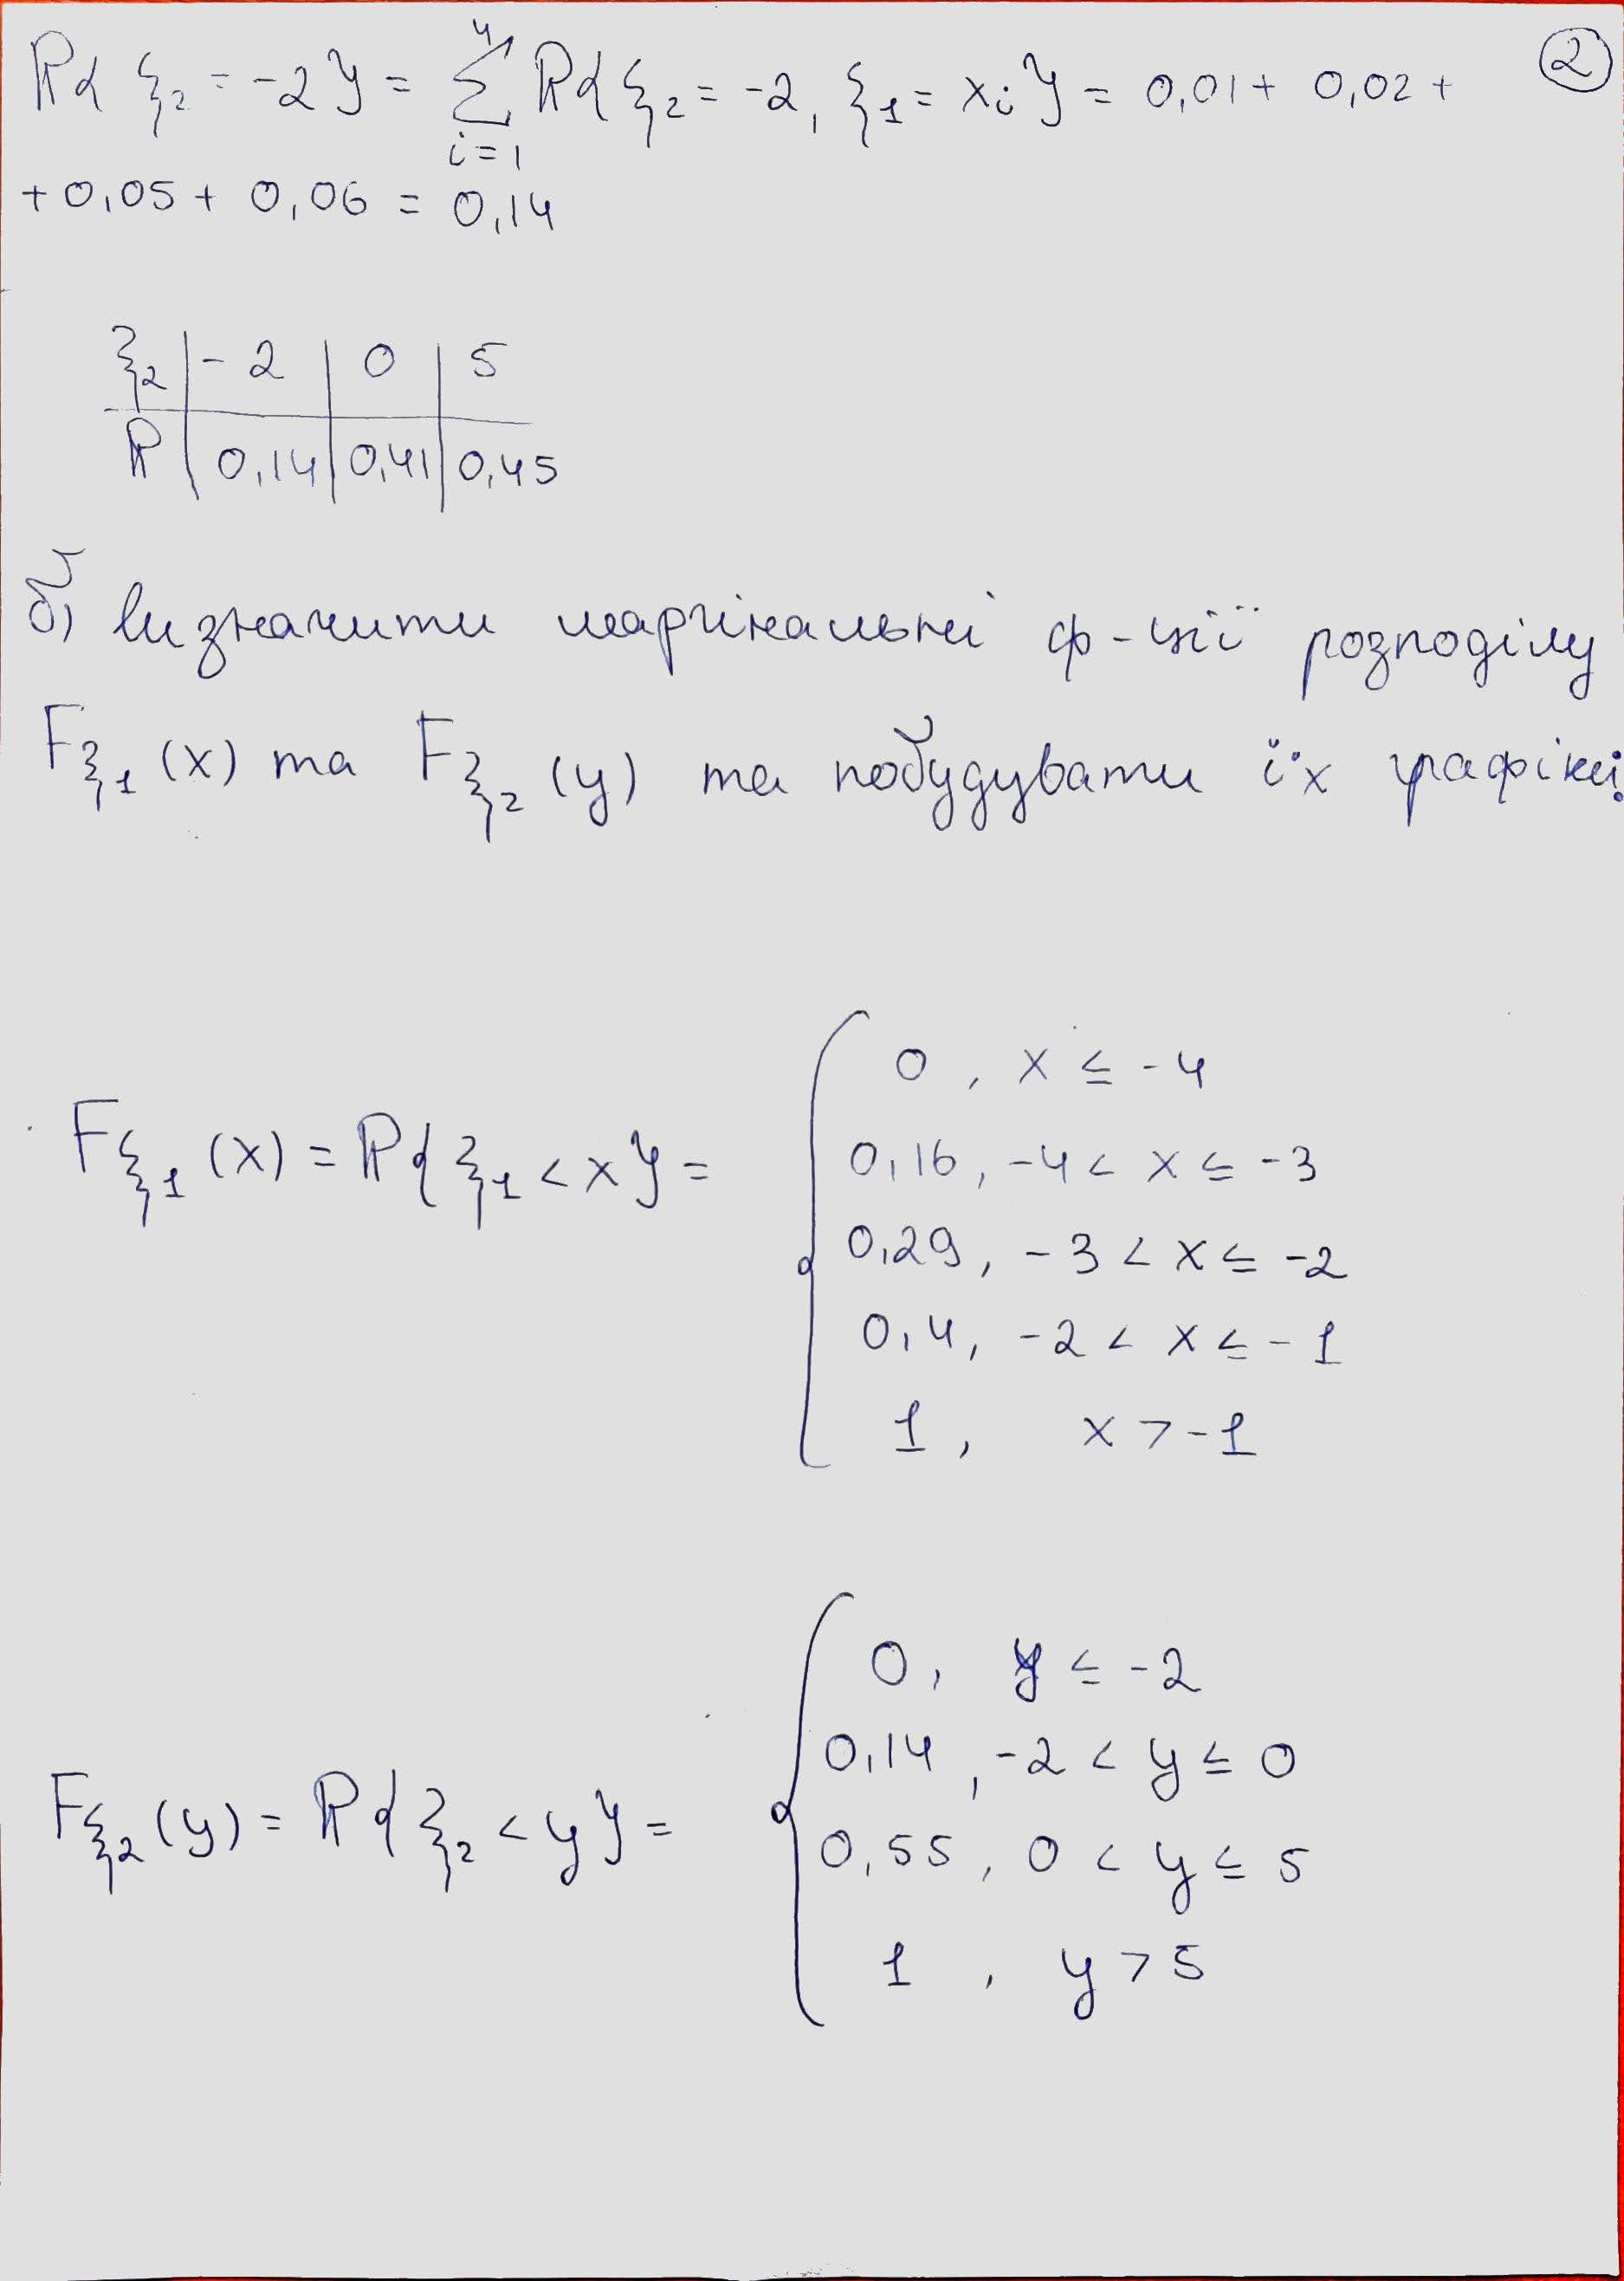 P{ξ₂ = -2} = ∑ᵢ₌₁⁴ P{ξ₂ = -2, ξ₁ = xᵢ} = 0,01 + 0,02 +
②
+ 0,05 + 0,06 = 0,14
ξ₂ | -2 | 0 | 5
P | 0,14 | 0,41 | 0,45
б) Визначити маргінальні ф-ції розподілу
F_ξ₁(x) та F_ξ₂(y) та побудувати їх графіки.
F_ξ₁(x) = P{ξ₁ < x} = {
0, x ≤ -4
0,16, -4 < x ≤ -3
0,29, -3 < x ≤ -2
0,4, -2 < x ≤ -1
1, x > -1
F_ξ₂(y) = P{ξ₂ < y} = {
0, y ≤ -2
0,14, -2 < y ≤ 0
0,55, 0 < y ≤ 5
1, y > 5